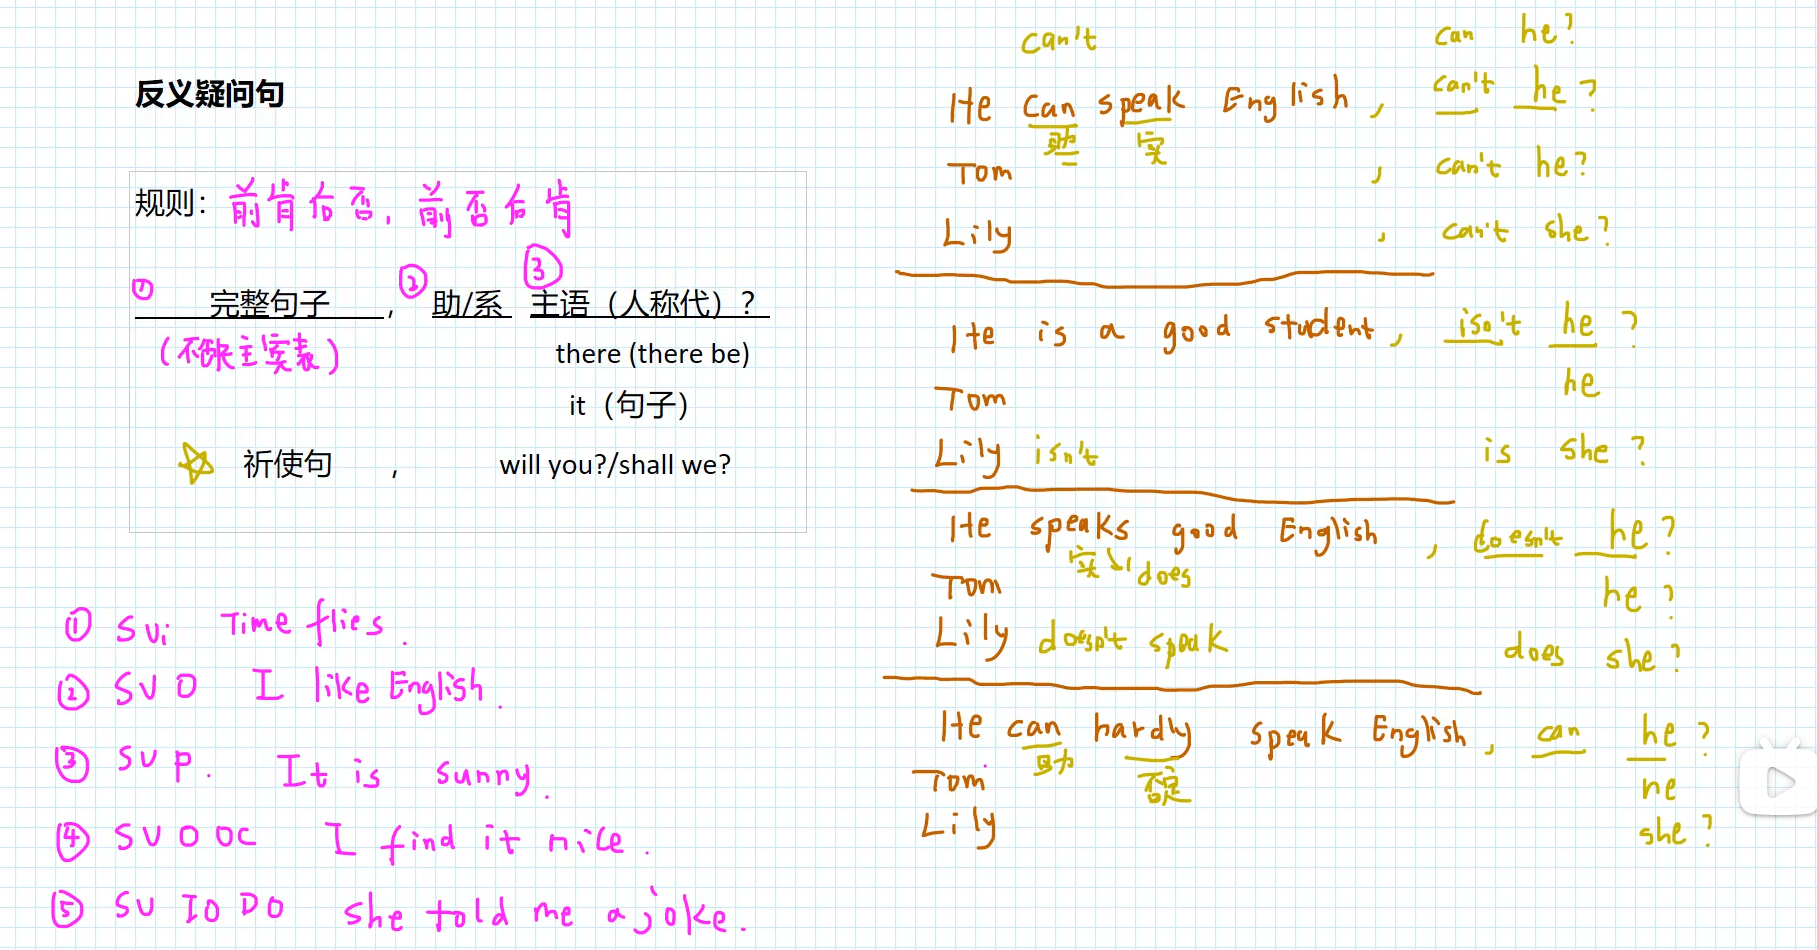 反义疑问句
规则：前肯后否，前否后肯
① 完整句子 ， ② 助/系 ③ 主语（人称代）？
（不缺主实表）
there (there be)
it（句子）
☆ 祈使句 ， will you?/shall we?
① SVi Time flies.
② SVO I like English.
③ SVP. It is sunny.
④ SVOOC I find it nice.
⑤ SV IO DO she told me a joke.
can't can he?
He can speak English , can't he?
助 实
Tom , can't he?
Lily , can't she?
He is a good student , isn't he ?
Tom he
Lily isn't is she ?
He speaks good English , doesn't he?
实 does
Tom he ?
Lily doesn't speak does she?
He can hardly speak English , can he ?
助 否定
Tom he
Lily she ?